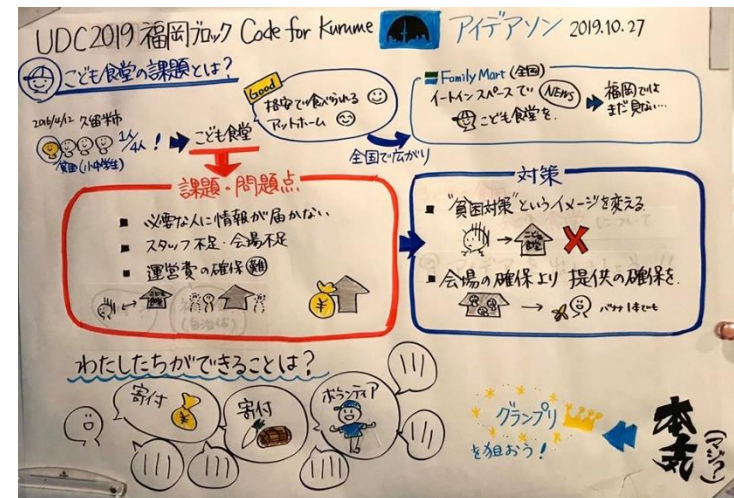 UDC2019 福岡ブロック Code for Kurume アイデアソン 2019.10.27
こども食堂の課題とは？
2016/4/12 久留米市
1人/4人！
貧困(小中学生)
こども食堂
Good
格安で食べられる
アットホーム
全国で広がり
FamilyMart (全国)
イートインスペースで NEWS
こども食堂を.
福岡では
まだ見ない…
課題・問題点
■ 必要な人に情報が届かない
■ スタッフ不足・会場不足
■ 運営費の確保 難
対策
■ "貧困対策"というイメージを変える
こども食堂
■ 会場の確保より 提供の確保を.
バナナ1本でも
わたしたちができることは？
寄付
寄付
ボランティア
グランプリ
を狙おう！
本気
(マジ)